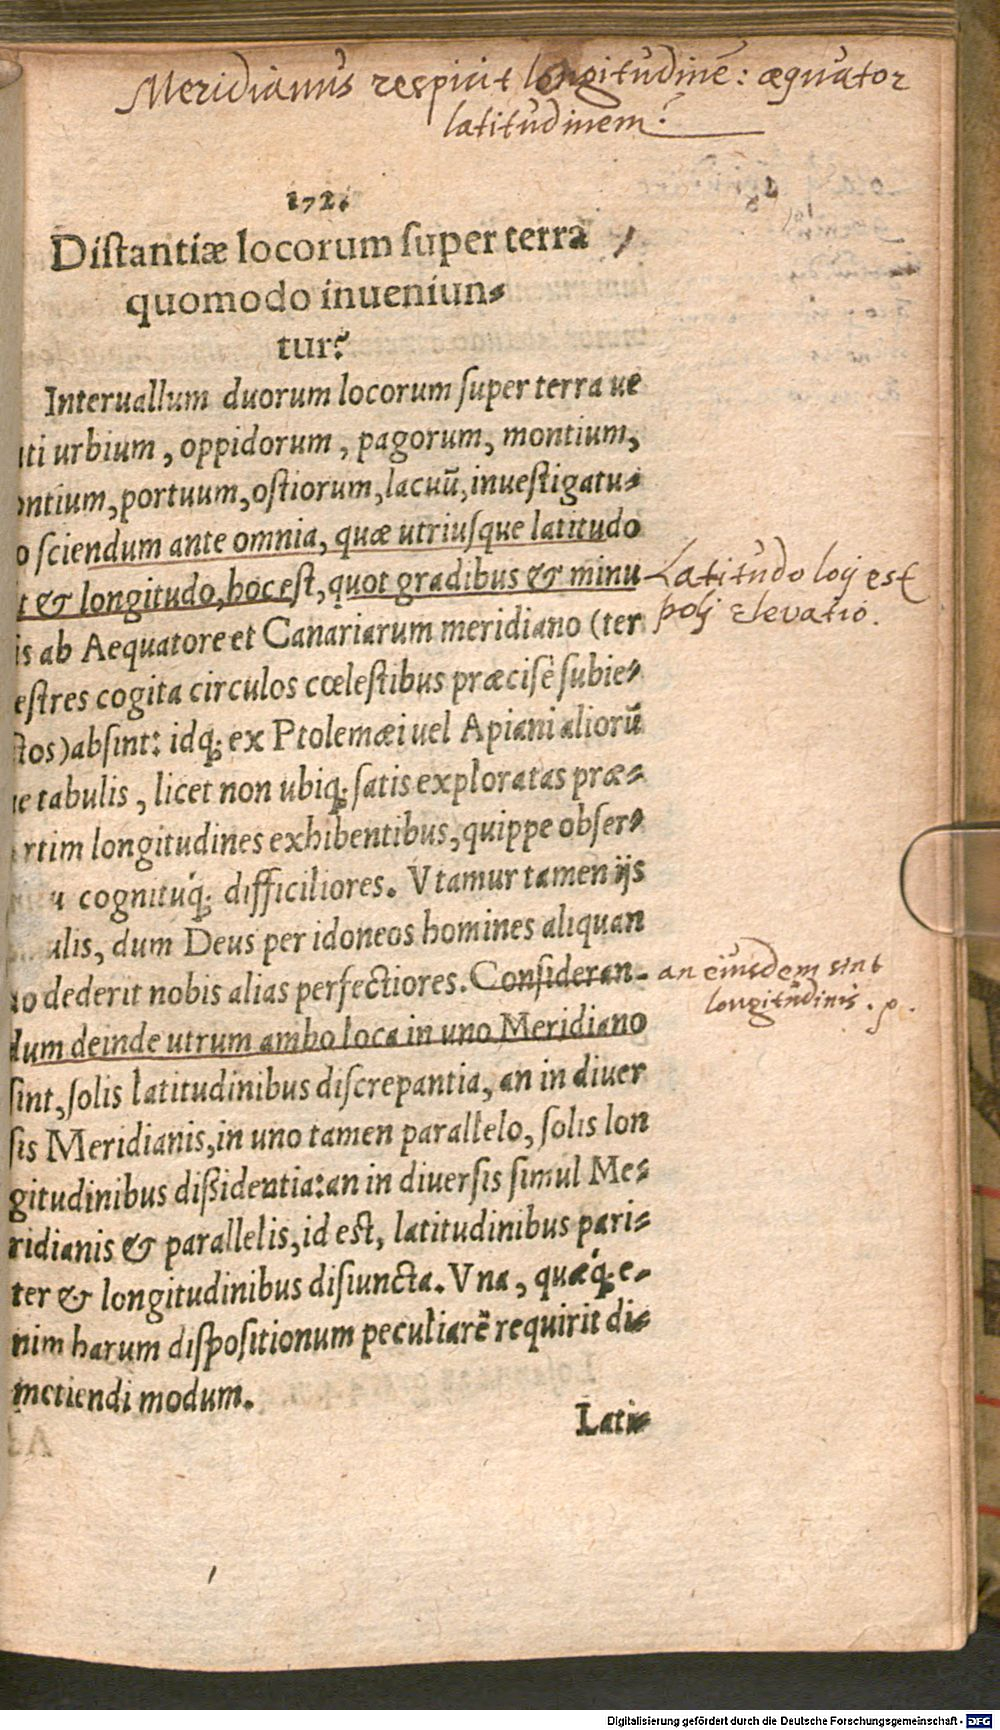 Meridianus respicit longitudinẽ: æquator
latitudinem.
172.
Diſtantiæ locorum ſuper terra
quomodo inueniun-
tur?
Interuallum duorum locorum ſuper terra ue
uti urbium, oppidorum, pagorum, montium,
ontium, portuum, oſtiorum, lacuũ, inueſtigatu-
o ſciendum ante omnia, quæ utriuſque latitudo
t & longitudo, hoc eſt, quot gradibus & minu
Latitudo loci est
is ab Aequatore et Canariarum meridiano (ter
poli elevatio.
eſtres cogita circulos cœleſtibus præciſè ſubie-
ctos) abſint: idq; ex Ptolemæi uel Apiani aliorũ
ue tabulis, licet non ubiq; ſatis exploratas præ-
rtim longitudines exhibentibus, quippe obſer-
u cognituq́; difficiliores. Vtamur tamen ijs
ulis, dum Deus per idoneos homines aliquan
do dederit nobis alias perfectiores. Conſideran-
an eiusdem sint
longitudinis. p.
dum deinde utrum ambo loca in uno Meridiano
ſint, ſolis latitudinibus diſcrepantia, an in diuer
ſis Meridianis, in uno tamen parallelo, ſolis lon
gitudinibus diſsidentia: an in diuerſis ſimul Me-
ridianis & parallelis, id eſt, latitudinibus pari-
ter & longitudinibus diſiuncta. Vna, quæq́; e-
nim harum diſpoſitionum peculiarẽ requirit di-
metiendi modum.
Lati-
Digitalisierung gefördert durch die Deutsche Forschungsgemeinschaft - DFG